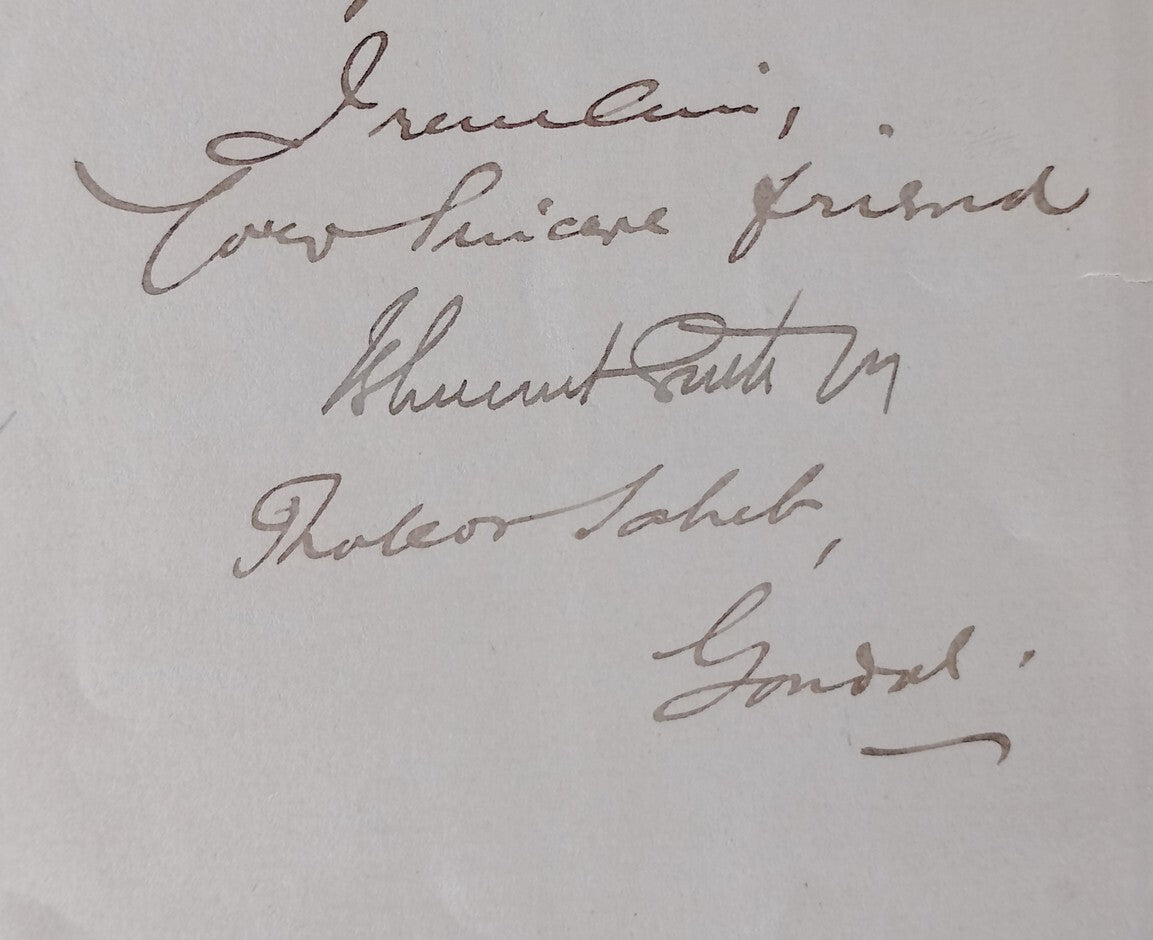 I remain,
Your Sincere friend
Bhagvat Sinh Jee
Thakor Saheb,
Gondal.